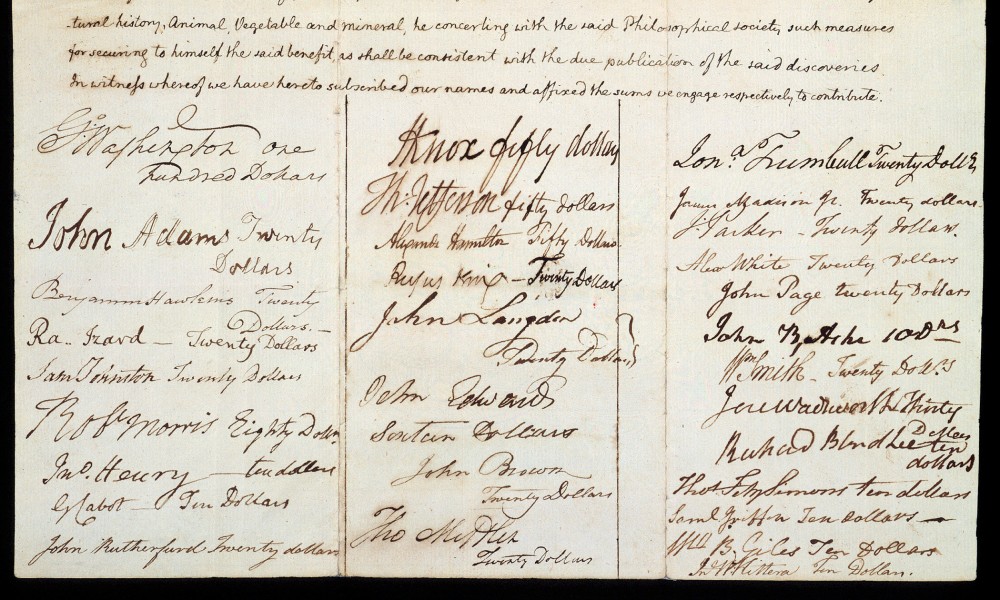 -tural history, Animal, Vegetable and mineral, he concerting with the said Philosophical society such measures
for securing to himself the said benefit, as shall be consistent with the due publication of the said discoveries
In witness whereof we have hereto subscribed our names and affixed the sums we engage respectively to contribute.
Go. Washington one
hundred Dollars
John Adams Twenty
Dollars
Benjamin Hawkins Twenty
Dollars.—
Ra.. Izard — Twenty Dollars
Sam Johnston Twenty Dollars
Robt Morris Eighty Dollars
Jno. Henry — ten dollars
G Cabot — Ten Dollars
John Rutherfurd Twenty dollars
HKnox fifty dollars
Th: Jefferson fifty dollars
Alexander Hamilton Fifty Dollars
Rufus King — Twenty Dollars
John Langdon
Twenty Dollars
John Edwards
Sixteen Dollars
John Brown
Twenty Dollars
Tho Mifflin
Twenty Dollars
Jona. Trumbull Twenty Dolls
James Madison Jr. Twenty dollars.
J. Parker — Twenty Dollars.
Alex White Twenty Dollars
John Page twenty Dollars
John B, Ashe 10 Drs
Wm Smith — Twenty Dolls
Jere Wadsworth Thirty
Dollars
Richard Bland Lee ten
dollars
Thos. FitzSimons ten dollars
Saml Griffin Ten Dollars —
Wm B. Giles Ten Dollars
Jno W Kittera Ten Dollars.